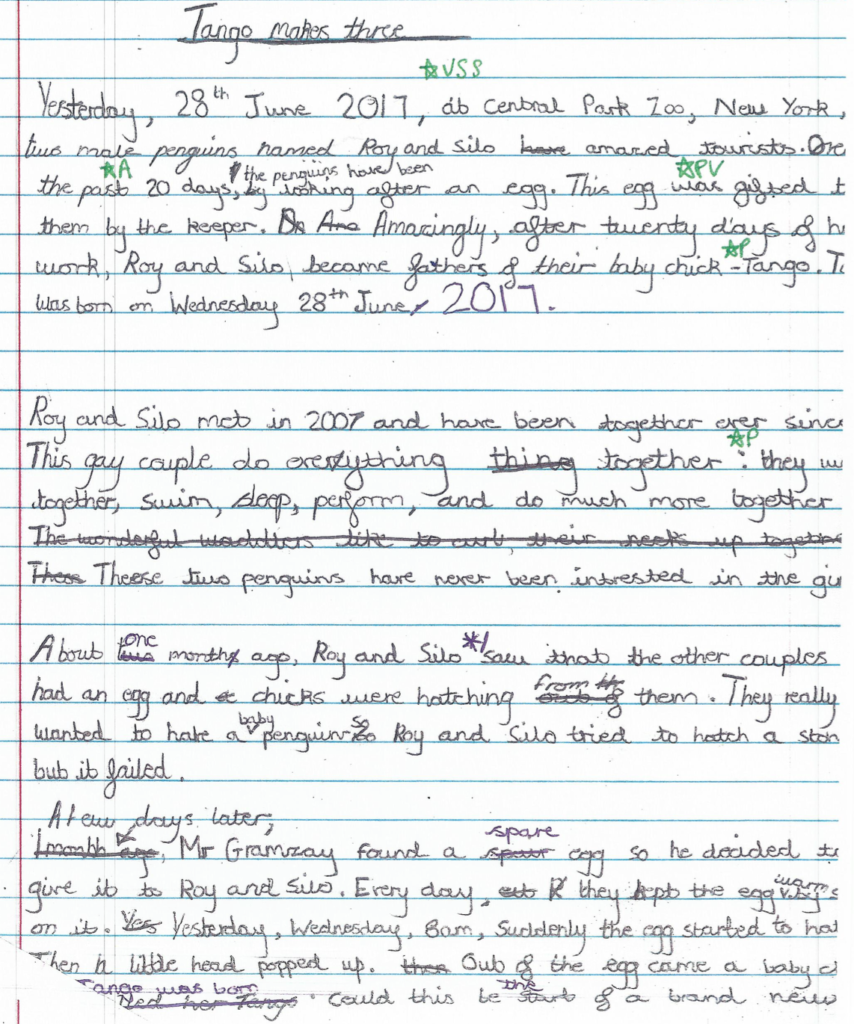 Tango makes three
☆VSS
Yesterday, 28th June 2017, at Central Park Zoo, New York,
two male penguins named Roy and Silo have amazed tourists. Over
☆A the penguins have been ☆PV
the past 20 days, by looking after an egg. This egg was gifted t
them by the keeper. Amazingly, after twenty days of h
☆P
work, Roy and Silo, became fathers of their baby chick - Tango. T
was born on Wednesday 28th June, 2017.
Roy and Silo met in 2007 and have been together ever since
☆P
This gay couple do everything thing together : they w
together, swim, sleep, perform, and do much more together
The wonderful waddlers like to curl their necks up together
These Theese two penguins have never been intrested in the gi
one
About two months ago, Roy and Silo */ saw that the other couples
from the
had an egg and chicks were hatching out of them. They really
baby so
wanted to have a penguin so Roy and Silo tried to hatch a ston
but it failed.
A few days later,
spare
1 month ago, Mr Gramzay found a egg so he decided to
warm
give it to Roy and Silo. Every day, they kept the egg by s
on it. Yes Yesterday, Wednesday, 8am, Suddenly the egg started to hat
Then a little head popped up. then Out of the egg came a baby c
Tango was born the
Could this be start of a brand new